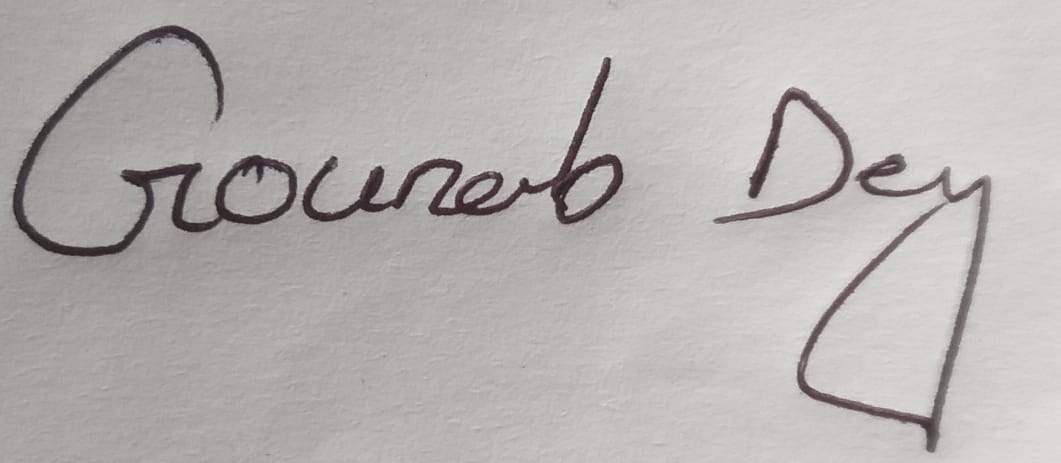 Gourab Dey